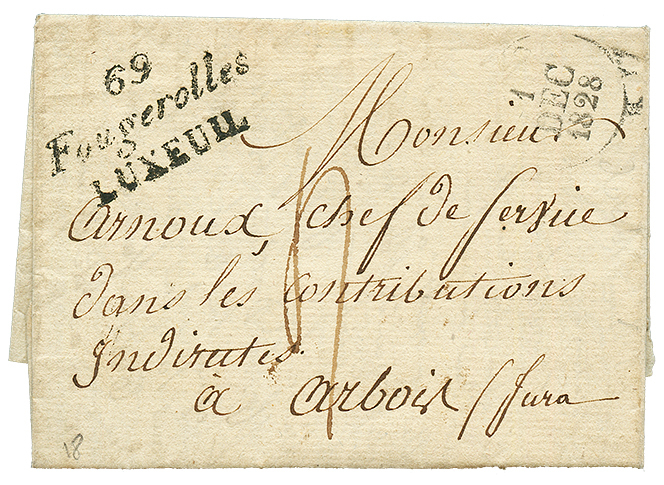 69
Fougerolles
LUXEUIL
1
DEC
1828
Monsieur
Arnoux, chef de Service
dans les contributions
Indirectes.
à Arbois / Jura
18